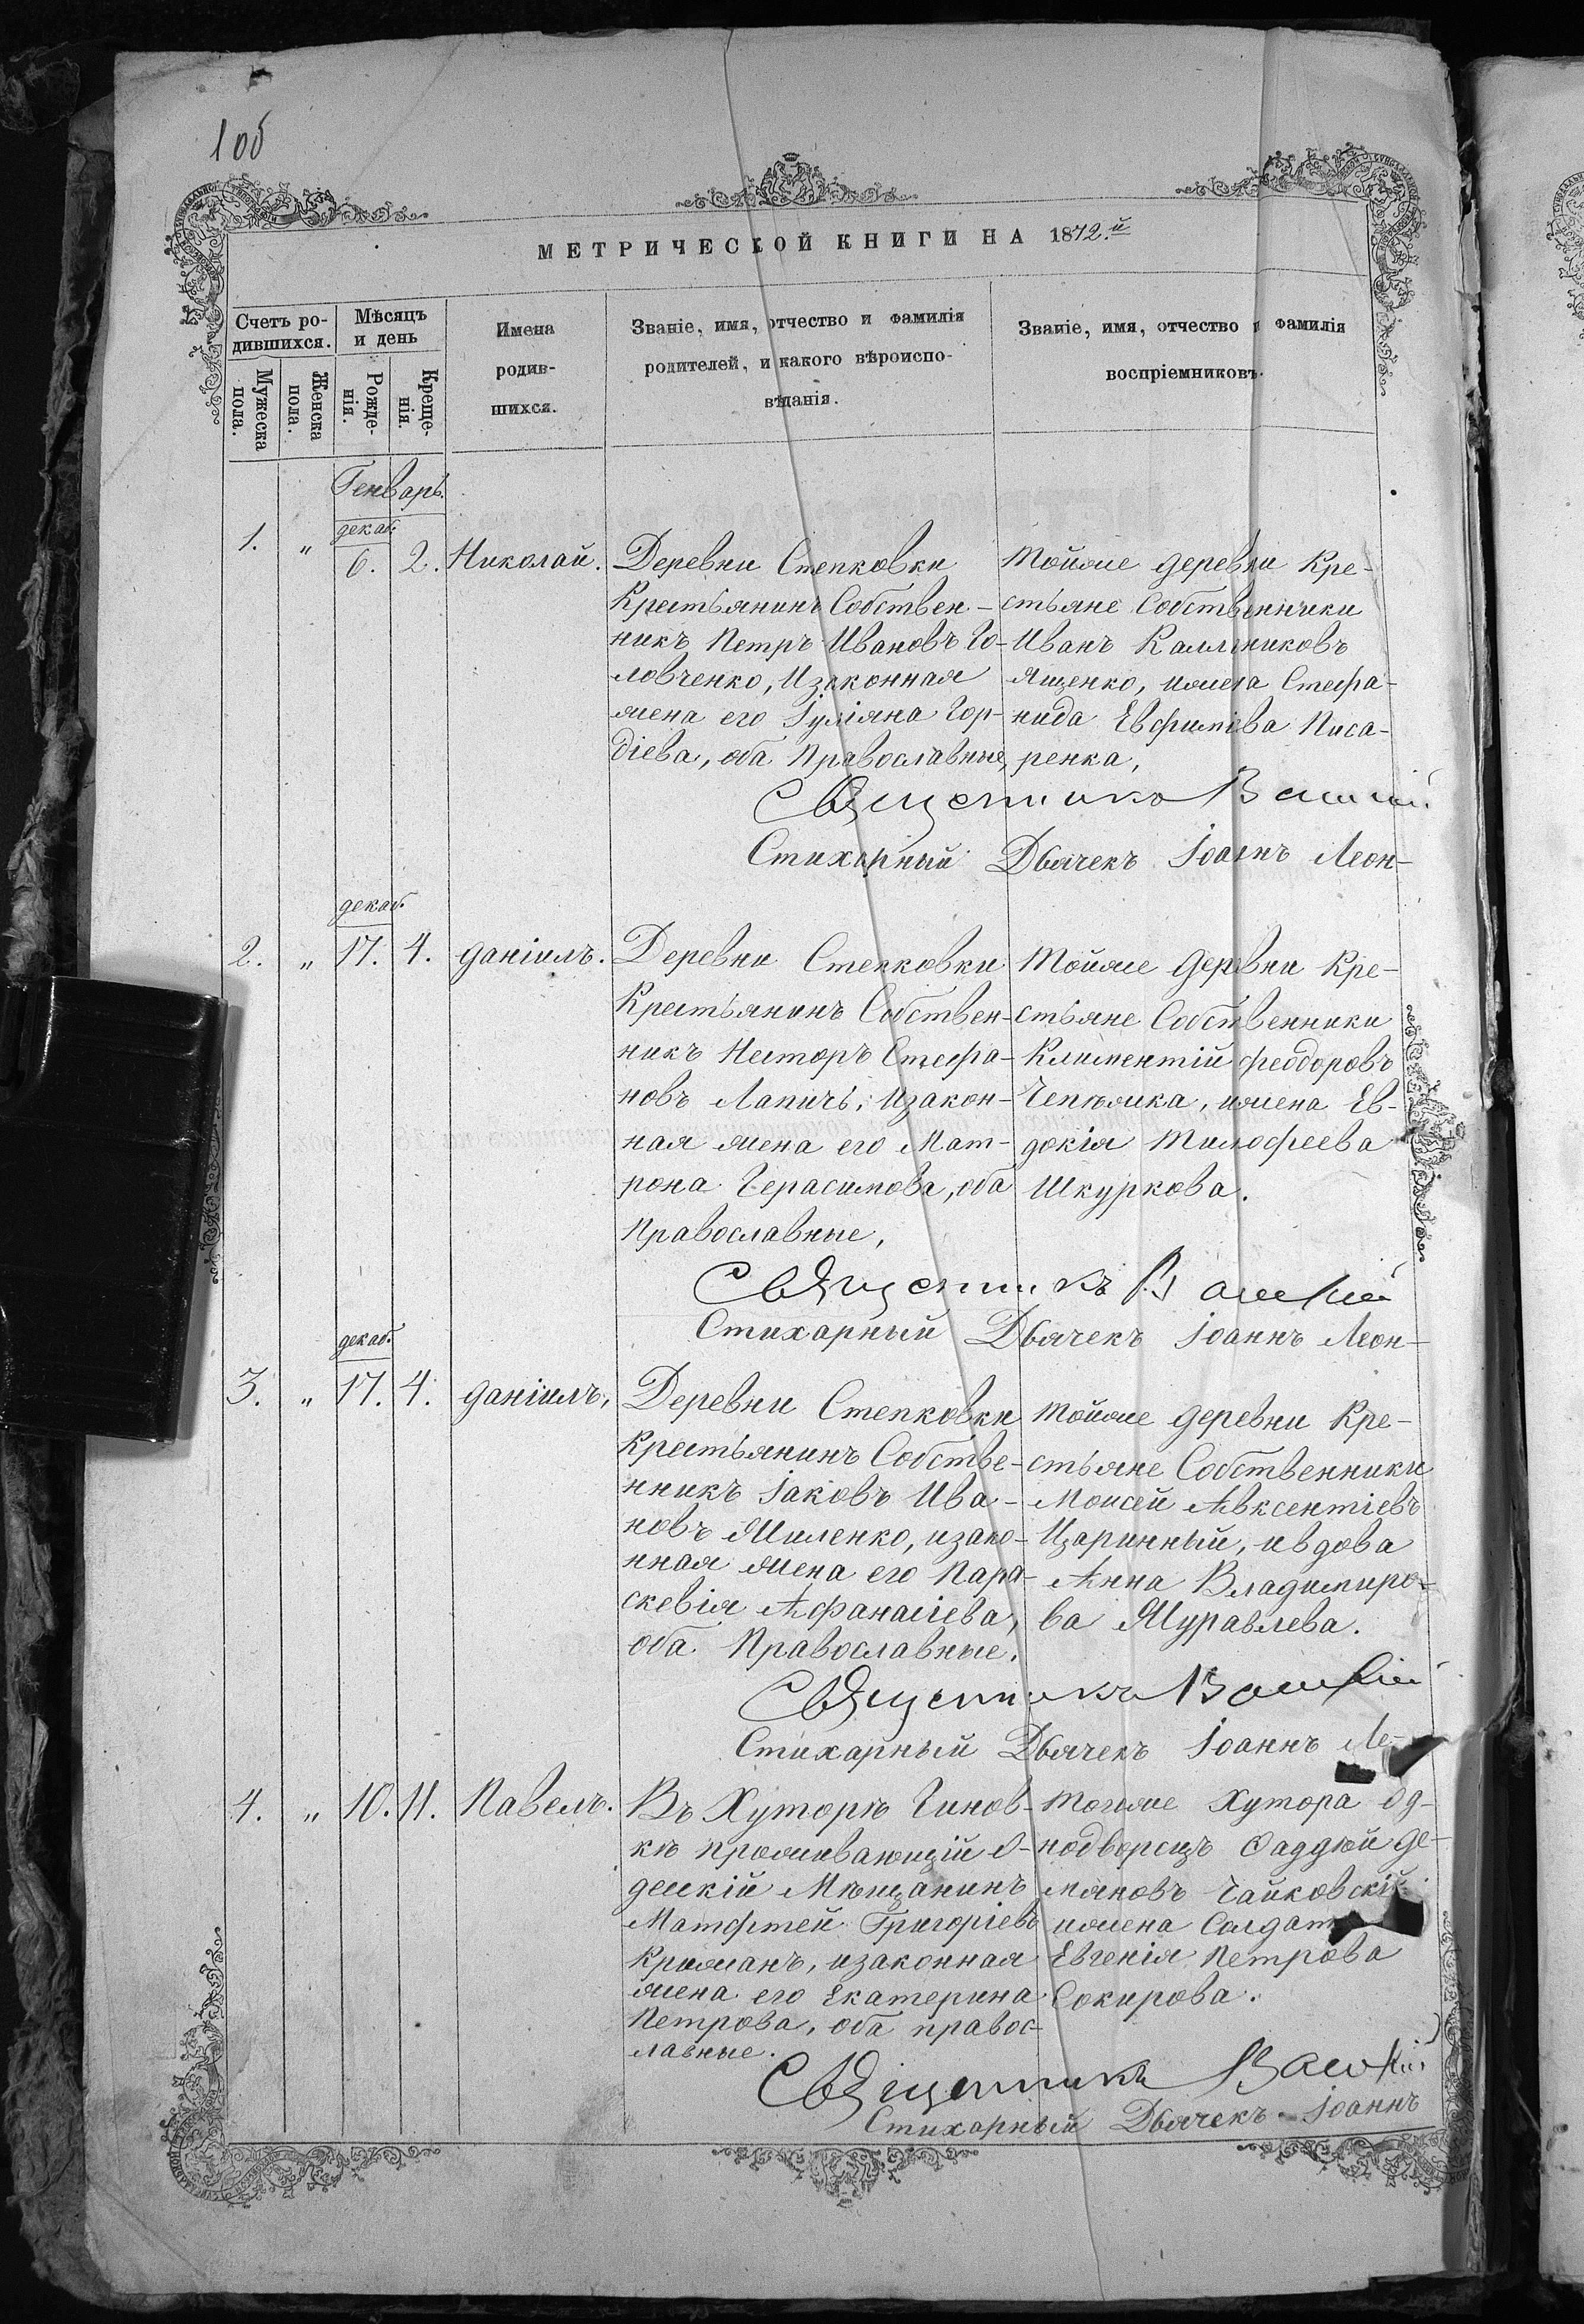 1 об
МЕТРИЧЕСКОЙ КНИГИ НА 1872.й
Счетъ ро-
дившихся.
Мужеска
пола.
Женска
пола.
Мѣсяцъ
и день
Рожде-
нія.
Креще-
нія.
Имена
родив-
шихся.
Званіе, имя, отчество и фамилія
родителей, и какого вѣроиспо-
вѣданія.
Званіе, имя, отчество и фамилія
воспріемниковъ.
Генварь.
декаб.
1. „ 6. 2. Николай.
Деревни Степковки
Крестьянинъ Собствен-
никъ Петръ Ивановъ Го-
ловченко, Изаконная
жена его Іуліяна Гор-
діева, оба Православные,
Тойже деревни Кре-
стьяне Собственники
Иванъ Каллиниковъ
Ященко, ижена Стефа-
нида Евфиміева Писа-
ренка,
Священникъ
Стихарный Дьячекъ Іоаннъ Леон-
декаб.
2. „ 17. 4. Даніилъ.
Деревни Степковки
Крестьянинъ Собствен-
никъ Несторъ Стефа-
новъ Лапичь, Изакон-
ная жена его Мат-
рона Герасимова, оба
Православные,
Тойже Деревни Кре-
стьяне Собственники
Климентій Феодоровъ
Чепѣжка, ижена Ев-
докія Тимофеева
Шкуркова.
Священникъ
Стихарный Дьячекъ Іоаннъ Леон-
декаб.
3. „ 17. 4. Даніилъ,
Деревни Степковки
Крестьянинъ Собстве-
нникъ Іаковъ Ива-
новъ Миленко, изако-
нная жена его Пара-
скевія Афанасіева,
оба Православные.
Тойже деревни Кре-
стьяне Собственники
Моисей Авксентіевъ
Царинный, ивдова
Анна Владимиро-
ва Муравлева.
Священникъ
Стихарный Дьячекъ Іоаннъ Ле-
4. „ 10. 11. Павелъ.
Въ Хуторѣ Чинов-
кѣ проживающій О-
десскій Мѣщанинъ
Матфтей Григоріевъ
Крижанъ, изаконная
жена его Екатерина
Петрова, оба правос-
лавные.
Тогоже Хутора од-
нодворецъ Фаддѣй де-
мяновъ Чайковскій
ижена Солдат
Евгенія Петрова
Сокирова.
Священникъ
Стихарный Дьячекъ Іоаннъ